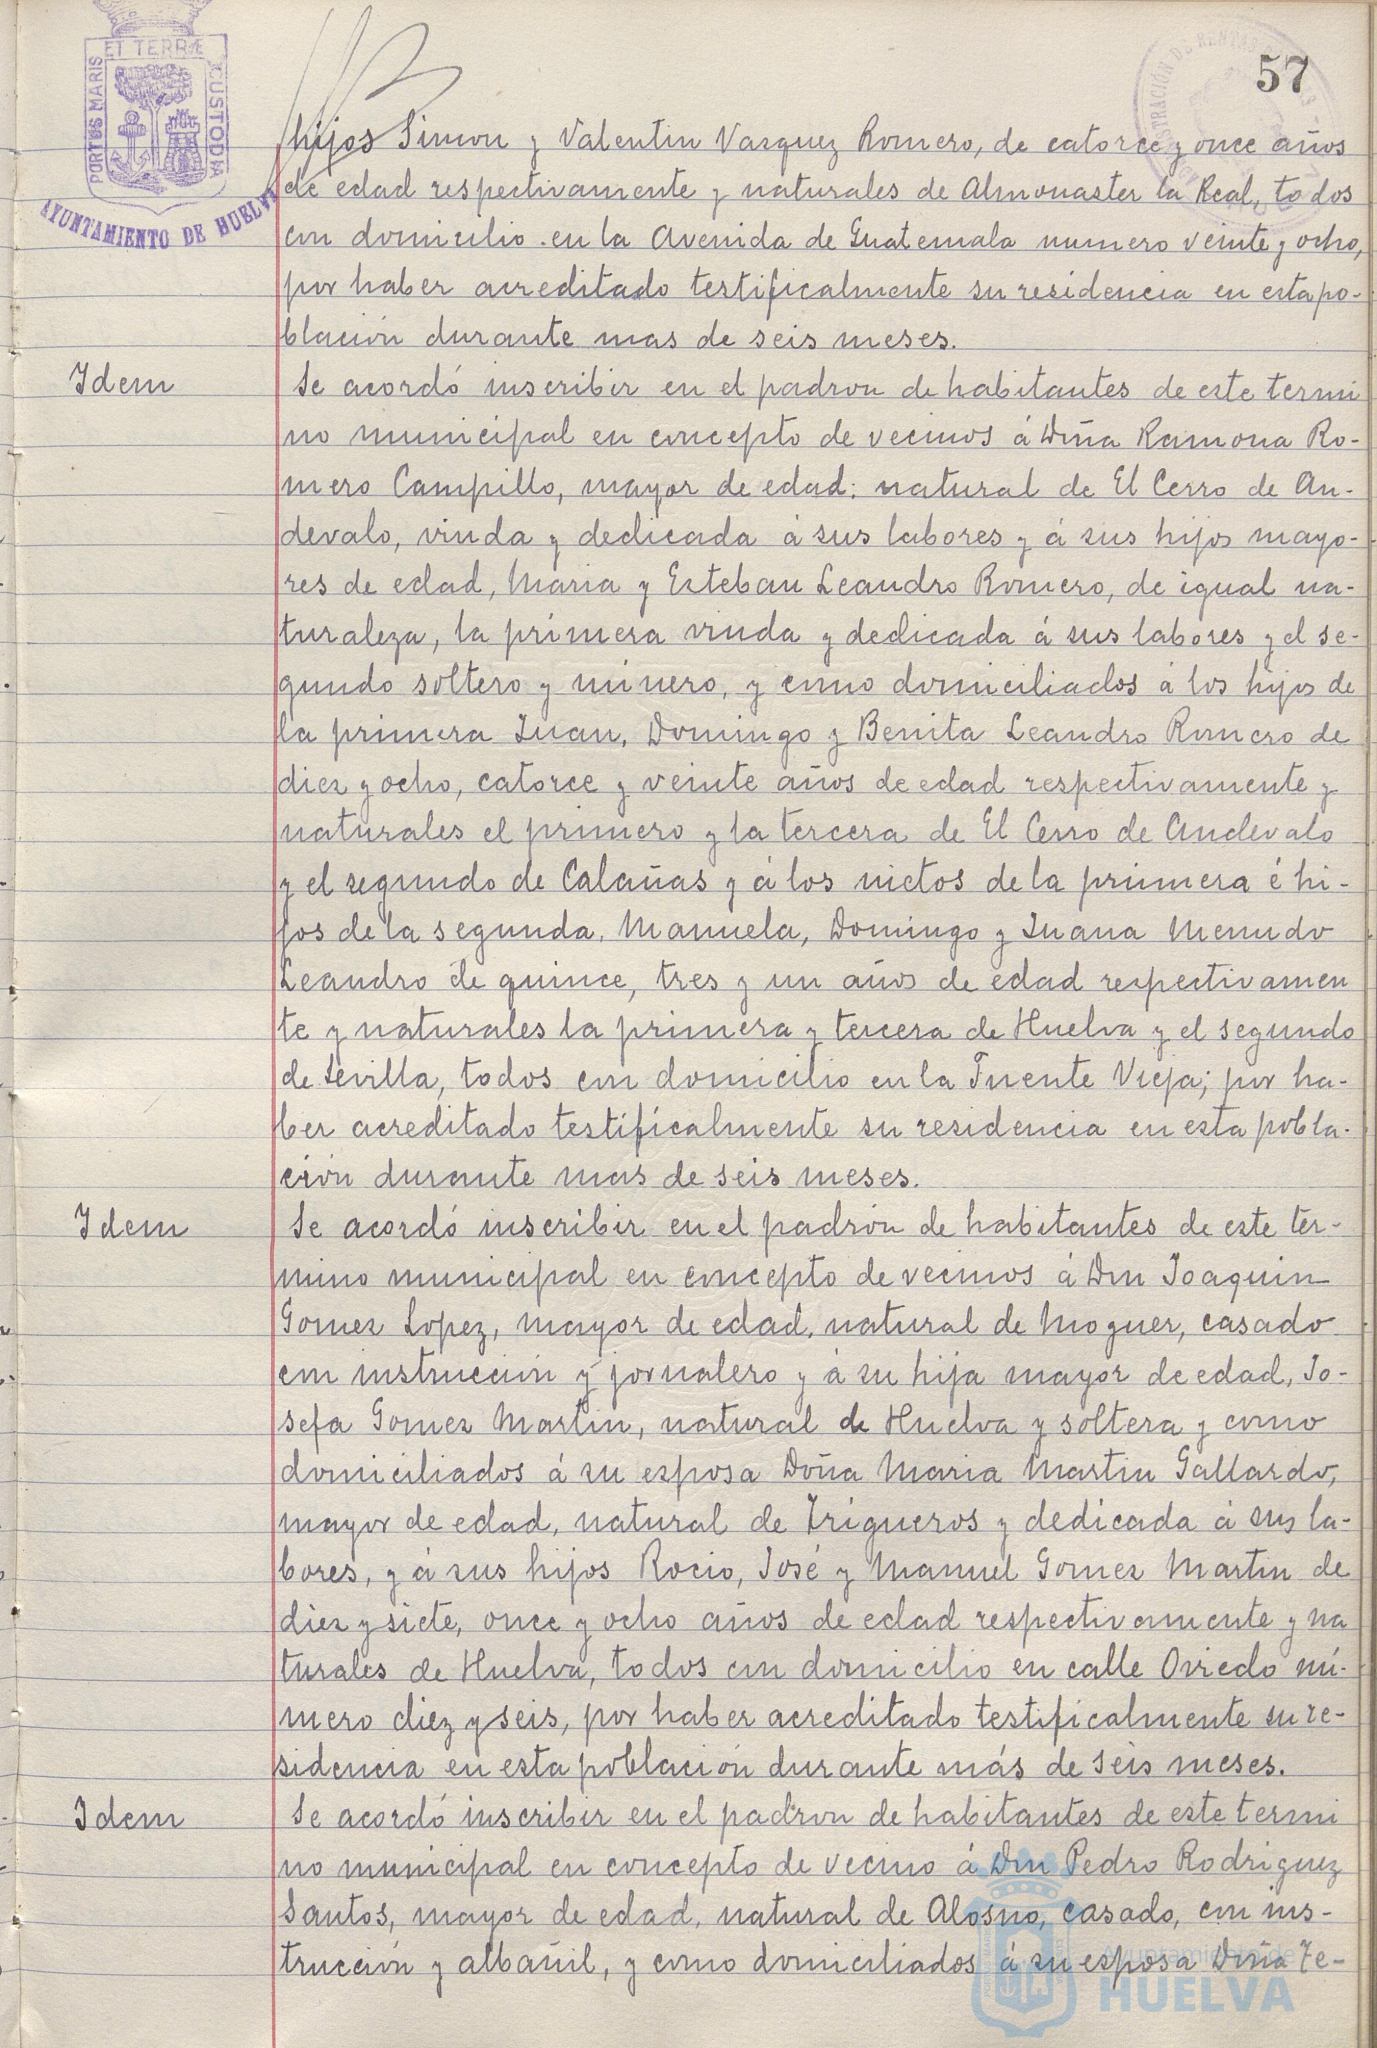 57
PORTUS MARIS ET TERRÆ CUSTODIA
AYUNTAMIENTO DE HUELVA
hijos Simon y Valentin Vazquez Romero, de catorce y once años
de edad respectivamente y naturales de Almonaster la Real, todos
con domicilio en la Avenida de Guatemala numero veinte y ocho,
por haber acreditado testificalmente su residencia en esta po-
blación durante mas de seis meses.
Idem
Se acordó inscribir en el padron de habitantes de este termi
no municipal en concepto de vecinos á Doña Ramona Ro-
mero Campillo, mayor de edad; natural de El Cerro de An-
devalo, viuda y dedicada á sus labores y á sus hijos mayo-
res de edad, Maria y Esteban Leandro Romero, de igual na-
turaleza, la primera viuda y dedicada á sus labores y el se-
gundo soltero y minero, y como domiciliados á los hijos de
la primera Juan, Domingo y Benita Leandro Romero de
diez y ocho, catorce y veinte años de edad respectivamente y
naturales el primero y la tercera de El Cerro de Andevalo
y el segundo de Calañas y á los nietos de la primera é hi-
jos de la segunda, Manuela, Domingo y Juana Menudo
Leandro de quince, tres y un años de edad respectivamen
te y naturales la primera y tercera de Huelva y el segundo
de Sevilla, todos con domicilio en la Fuente Vieja; por ha-
ber acreditado testificalmente su residencia en esta pobla-
ción durante mas de seis meses.
Idem
Se acordó inscribir en el padrón de habitantes de este tér-
mino municipal en concepto de vecinos á Don Joaquin
Gomez Lopez, mayor de edad, natural de Moguer, casado
con instrucción y jornalero y á su hija mayor de edad, Jo-
sefa Gomez Martin, natural de Huelva y soltera y como
domiciliados á su esposa Doña Maria Martin Gallardo,
mayor de edad, natural de Trigueros y dedicada á sus la-
bores, y á sus hijos Rocio, José y Manuel Gomez Martin de
diez y siete, once y ocho años de edad respectivamente y na
turales de Huelva, todos con domicilio en calle Oviedo nú-
mero diez y seis, por haber acreditado testificalmente su re-
sidencia en esta población durante más de seis meses.
Idem
Se acordó inscribir en el padron de habitantes de este termi
no municipal en concepto de vecino á Don Pedro Rodriguez
Santos, mayor de edad, natural de Alosno, casado, con ins-
trucción y albañil, y como domiciliados á su esposa Doña Te-
Ayuntamiento de
HUELVA